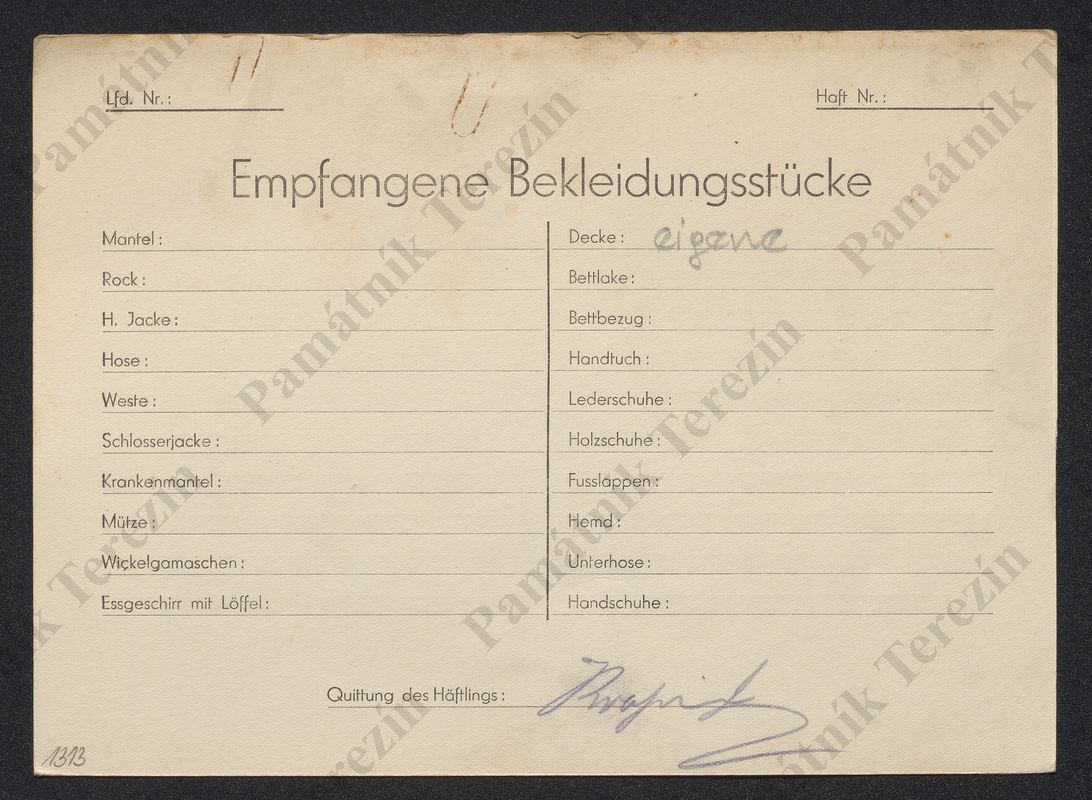 Lfd. Nr.:
Haft Nr.:
Empfangene Bekleidungsstücke
Mantel:
Rock:
H. Jacke:
Hose:
Weste:
Schlosserjacke:
Krankenmantel:
Mütze:
Wickelgamaschen:
Essgeschirr mit Löffel:
Decke: eigene
Bettlake:
Bettbezug:
Handtuch:
Lederschuhe:
Holzschuhe:
Fusslappen:
Hemd:
Unterhose:
Handschuhe:
Quittung des Häftlings:
1313
Památník Terezín
Památník Terezín
Památník Terezín
Památník Terezín